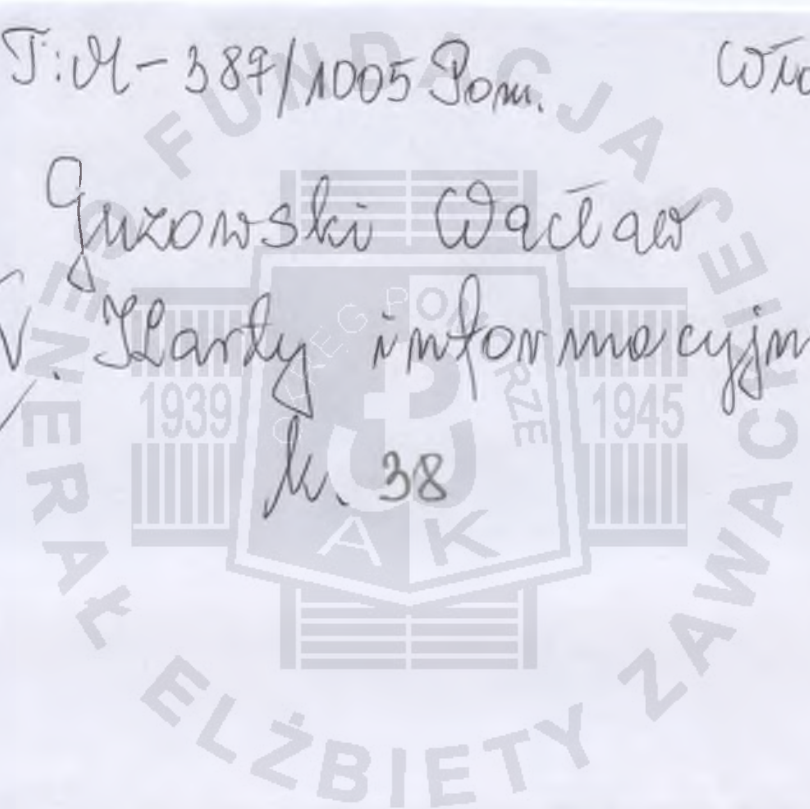 T:M-387/1005 Pom.
Guzowski Wacław
V. Karty informacyjn
k. 38
FUNDACJA
GENERAŁ ELŻBIETY ZAWACKIEJ
OKRĘG POMORZE
1939 1945
AK